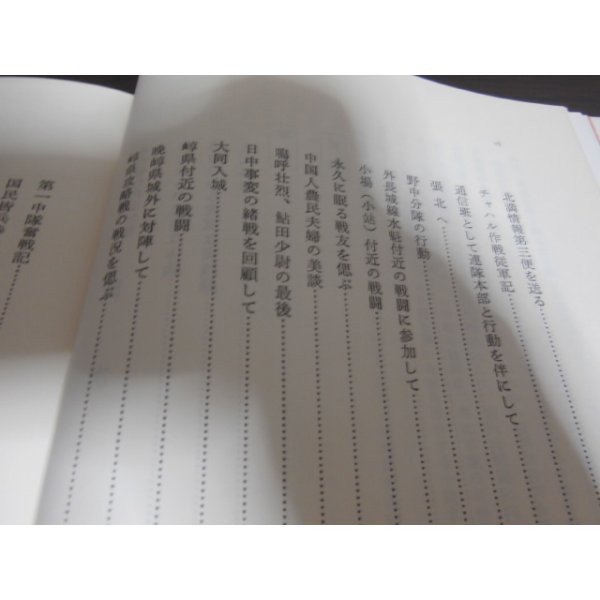 北満情報第三便を送る
チャハル作戦従軍記
通信班として連隊本部と行動を伴にして
張北へ
野中分隊の行動
外長城線水駐付近の戦闘に参加して
小場(小站)付近の戦闘
永久に眠る戦友を偲ぶ
中国人農民夫婦の美談
嗚呼壮烈、鮎田少尉の最後
日中事変の緒戦を回顧して
大同入城
崞県付近の戦闘
晩崞県城外に対陣して
崞県攻略戦の戦況を偲ぶ
第一中隊奮戦記
国民皆兵